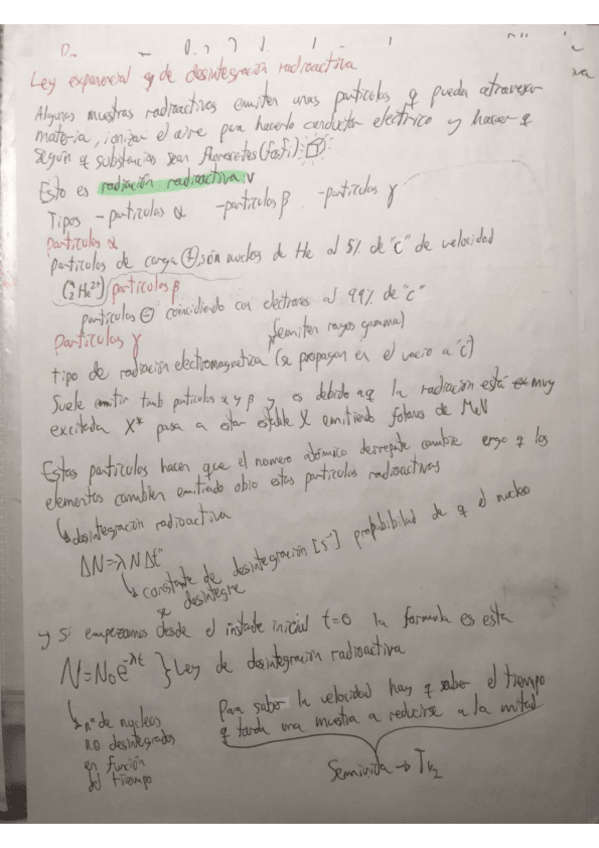 Ley exponencial q de desintegración radioactiva
Algunas muestras radioactivas emiten unas particulas q pueden atravesar
materia, ionizar el aire para hacerlo conductor electrico y hacer q
según q substancias sean fluorecetes (fosfi)
Esto es radiación radioactiva
Tipos - particulas α - particulas β - particulas γ
particulas α
particulas de carga ⊕, són nucleos de He al 5% de "c" de velocidad
(⁴₂He²⁺) particulas β
particulas ⊖ coincidiendo con electrones al 99% de "c"
particulas γ (emiten rayos gamma)
tipo de radiación electromagnetica (se propagan en el vacio a "c")
Suele emitir tamb particulas α y β y es debido a q la radiación está muy
excitada X* pasa a estar estable X emitiendo fotones de MeV
Estas particulas hacen que el nomero atómico derrepente cambie ergo q los
elementos cambien emitiedo obio estas particulas radioactivas
↳ desintegración radioactiva
ΔN=λNΔt
↳ constante de desintegración [s⁻¹] propabibilidad de q el nucleo
se desintegre
y si empezamos desde el instate inicial t=0 la formula es esta
N=N₀e^-λt } Ley de desintegración radioactiva
↳ nº de nucleos
no desintegrados
en función
del tiempo
Para saber la velocidad hay q saber el tiempo
q tarda una muestra a reducirse a la mitad
Semivida → T½